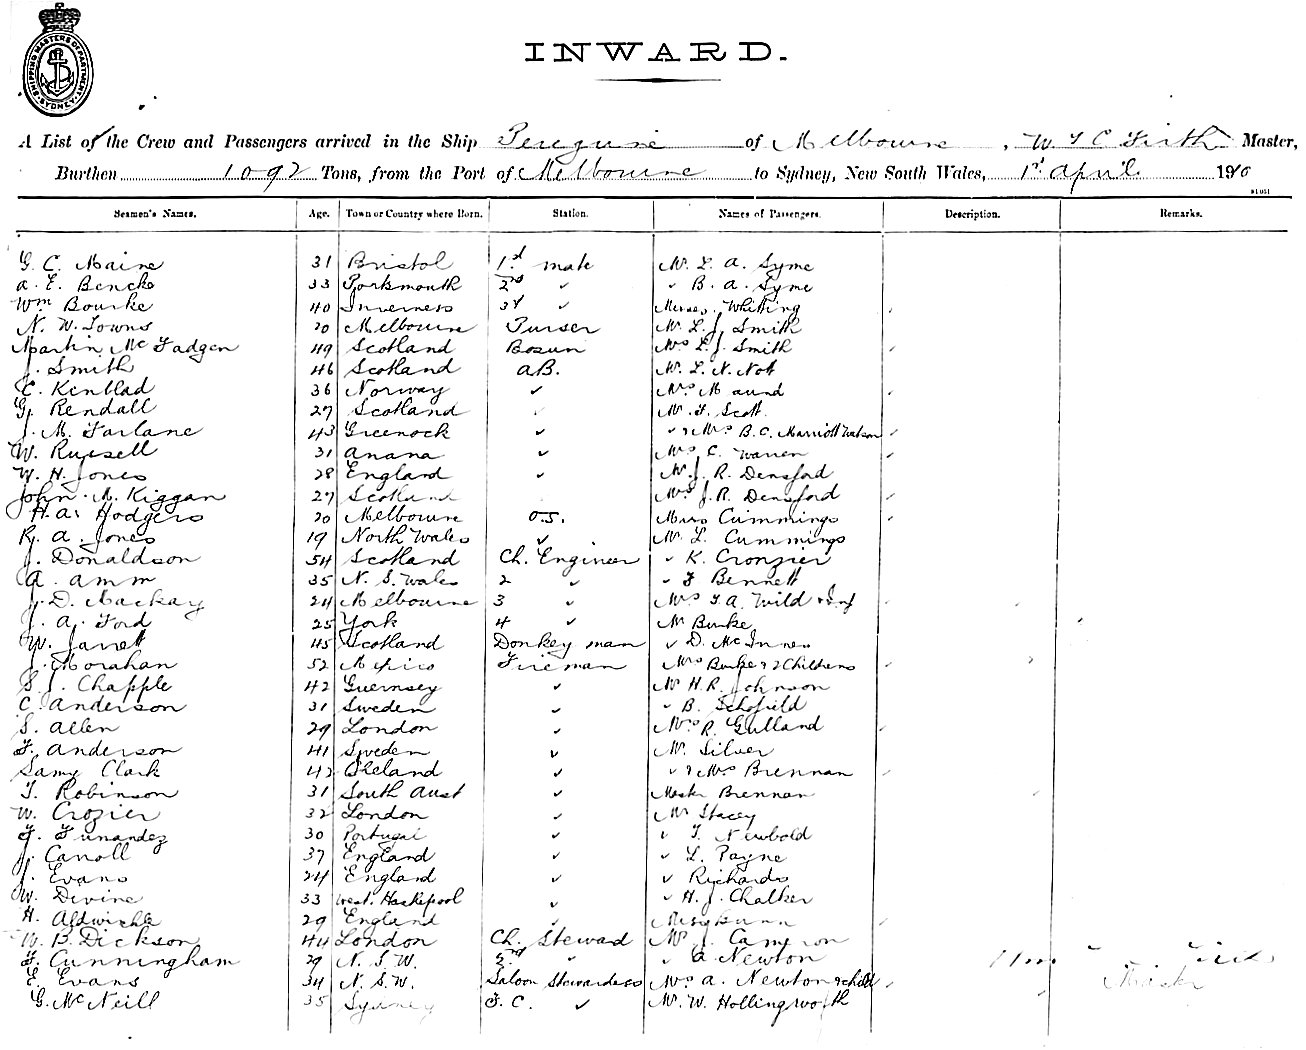 SHIPPING MASTERS DEPARTMENT SYDNEY
INWARD.
A List of the Crew and Passengers arrived in the Ship Peregrine of Melbourne, W T C Firth Master,
Burthen 1092 Tons, from the Port of Melbourne to Sydney, New South Wales, 1st April 1910
Seamen's Names. Age. Town or Country where Born. Station. Names of Passengers. Description. Remarks.
G. C. Maine 31 Bristol 1st mate Mr. L. A. Syme
A. E. Bencke 33 Portsmouth 2nd ✓ ✓ B. A. Syme
Wm Bourke 40 Inverness 3d ✓ Misses Whitting
N. W. Towns 20 Melbourne Purser Mr. L. J. Smith
Martin McFadgen 49 Scotland Bosun Mrs L. J. Smith
J. Smith 46 Scotland AB. Mr. L. N. Not
C. Kenblad 36 Norway ✓ Mrs Maund
G. Rendall 27 Scotland Mr. F. Scott
J. M. Farlane 43 Greenock ✓ ✓ & Mrs B. C. Marriott Watson
W. Russell 31 ✓ Mrs C. Warren
W. H. Jones 28 England ✓ Mr. J. R. Densford
John M. Kiggan 27 Scotland Mrs J. R. Densford
H. A. Hodgers 20 Melbourne O.S. Miss Cummings
R. A. Jones 19 North Wales ✓ Mr. L. Cummings
J. Donaldson 54 Scotland Ch. Engineer ✓ K. Crongier
A. Amm 35 N. S. Wales 2 ✓ ✓ F Bennett
J. D. Mackay 24 Melbourne 3 ✓ Mrs F. A. Wild & Inf
J. A. Ford 25 York 4 ✓ Mr Burke
W. Jarrett 45 Scotland Donkeyman ✓ D. McInnes
J. Morahan 52 Fireman Mrs Burke & 2 Childrens
S. J. Chapple 42 Guernsey ✓ Mr H. R. Johnson
C. Anderson 31 Sweden ✓ ✓ B. Schofield
S. Allen 29 London ✓ Mrs R. Gulland
F. Anderson 41 Sweden ✓ Mr. Silver
Saml Clark 42 Ireland ✓ ✓ & Mrs Brennan
T. Robinson 31 South Aust ✓ Master Brennan
W. Crozier 32 London ✓ Mr Stacey
F. Funandez 30 Portugal ✓ ✓ T. Newbold
J. Carroll 37 England ✓ ✓ L. Payne
J. Evans 24 England ✓ ✓ Richards
W. Divine 33 West. Hartlepool ✓ ✓ H. J. Chalker
H. Aldwickle 29 England ✓
W. B. Dickson 44 London Ch. Steward Mr. J. Cameron
F. Cunningham 29 N. S. W. 2nd ✓ ✓ A. Newton
E. Evans 34 N. S. W. Saloon Stewardess Mrs A. Newton & child Master
G. McNeill 35 Sydney F. C. ✓ Mr. W. Hollingworth